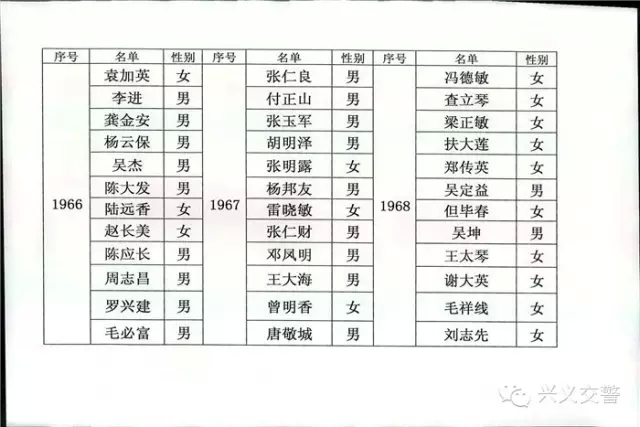 序号 名单 性别 序号 名单 性别 序号 名单 性别
袁加英 女 张仁良 男 冯德敏 女
李进 男 付正山 男 查立琴 女
龚金安 男 张玉军 男 梁正敏 女
杨云保 男 胡明泽 男 扶大莲 女
吴杰 男 张明露 女 郑传英 女
陈大发 男 杨邦友 男 吴定益 男
1966 陆远香 女 1967 雷晓敏 女 1968 但毕春 女
赵长美 女 张仁财 男 吴坤 男
陈应长 男 邓凤明 男 王太琴 女
周志昌 男 王大海 男 谢大英 女
罗兴建 男 曾明香 女 毛祥线 女
毛必富 男 唐敬城 男 刘志先 女
兴义交警